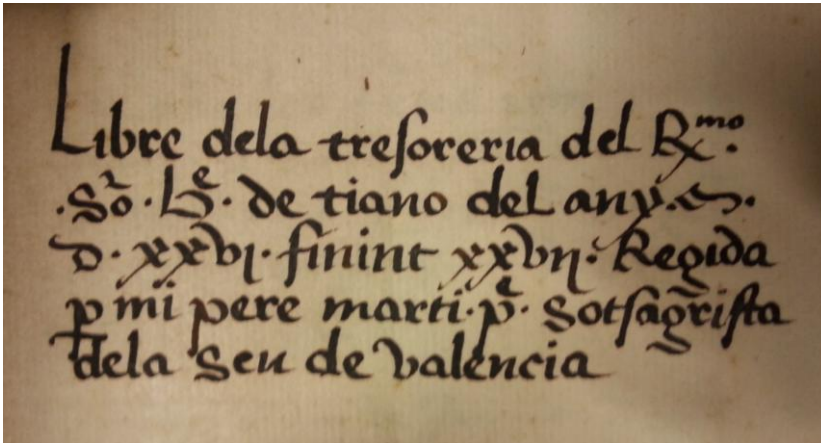 Libre dela tresoreria del Rmo.
.Sõ. bẽ. de tiano del any. m.
D. xxvi. finint xxvii. Regida
p mi pere marti. pe. Sotsagrista
dela Seu de Valencia